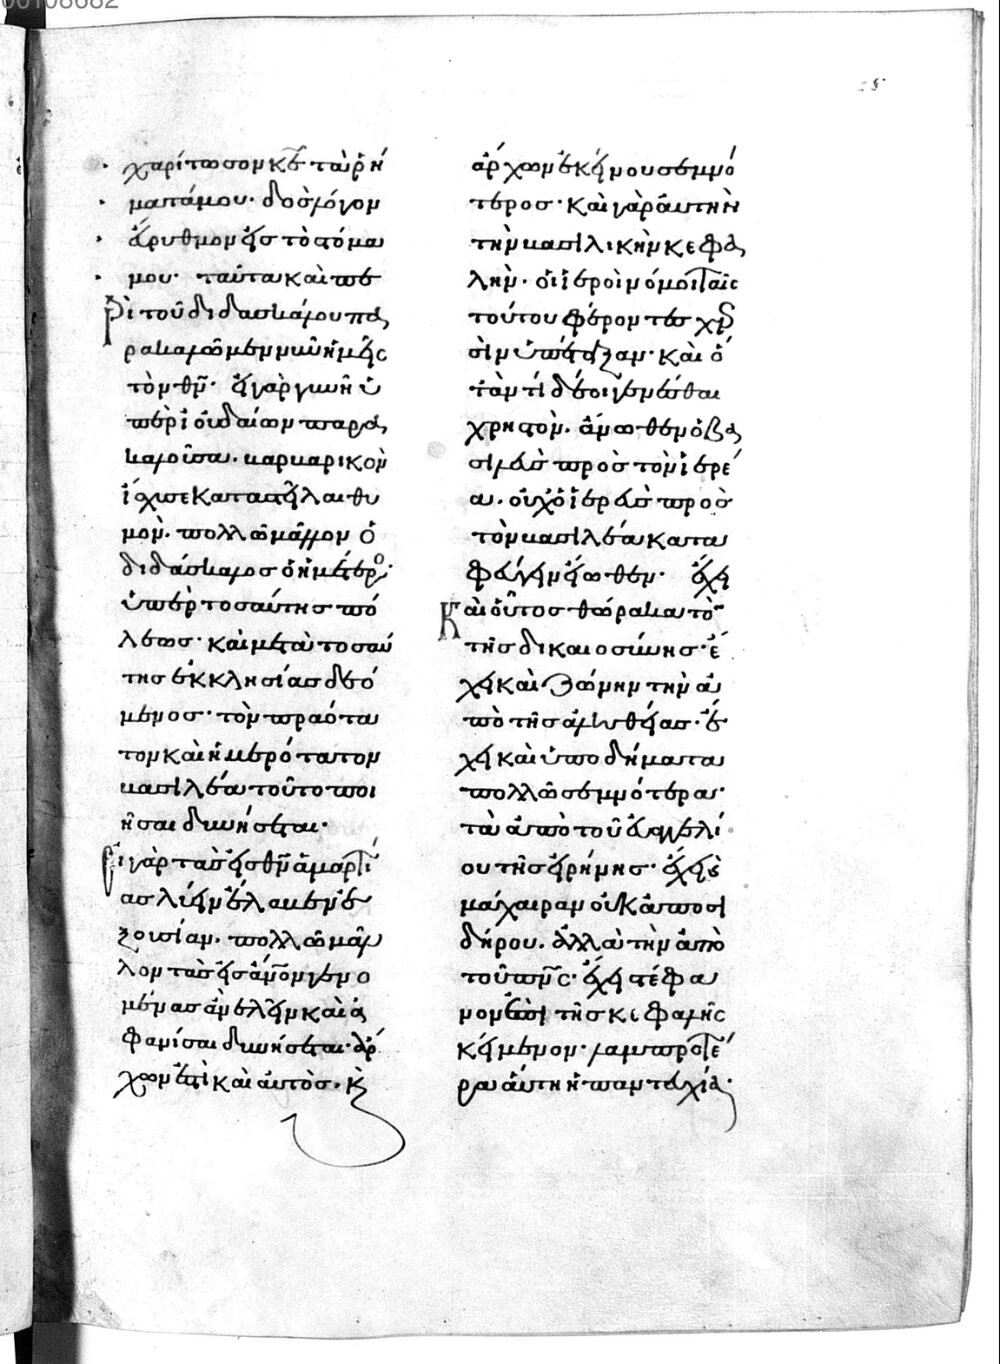 00108682
χαρίτωσον κε τὰ ῥή
ματά μου· δὸς λόγον
εὔρυθμον εἰς τὸ στόμα
μου· ταῦτα καὶ πε
ρὶ τοῦ διδασκάλου πα
ρακαλῶμεν νῦν ἡμεῖς
τὸν θν· εἰ γὰρ γυνὴ ὑ
πὲρ ἰουδαίων παρα
καλοῦσα· βαρβαρικὸν
ἴσχυσε καταστεῖλαι θυ
μόν· πολλῶ μᾶλλον ὁ
διδάσκαλος ὁ ἡμέτερο
ὑπὲρ τοσαύτης πό
λεως· καὶ μετὰ τοσαύ
της ἐκκλησίας δεό
μενος· τὸν πραότα
τον καὶ ἡμερότατον
βασιλέα τοῦτο ποι
ῆσαι δυνήσεται·
εἰ γὰρ τὰς εἰς θν ἁμαρτί
ας λύειν ἔλαβεν ἐ
ξουσίαν· πολλῶ μᾶλ
λον τὰς εἰς ἄνον γενο
μένας ἀνελεῖν καὶ ἀ
φανίσαι δυνήσεται· ἄρ
χων ἐστὶ καὶ αὐτὸς· κ
ἄρχων ἐκείνου σεμνό
τερος· καὶ γὰρ αὐτὴν
τὴν βασιλικὴν κεφα
λὴν· οἱ ἱεροὶ νόμοι ταῖς
τούτου φέροντες χερ
σὶν ὑπέταξαν· καὶ ὅ
ταν τί δέοι γενέσθαι
χρηστὸν· ἄνωθεν ὁ βα
σιλεὺς πρὸς τὸν ἱερέ
α· οὐχ ὁ ἱερεὺς πρὸς
τὸν βασιλέα κατα
φεύγειν εἴωθεν· ἔχει
καὶ οὗτος θώρακα τὸν
τῆς δικαιοσύνης· ἔ
χει καὶ ζώνην τὴν ἀ
πὸ τῆς ἀληθείας· ἔ
χει καὶ ὑποδήματα
πολλῶ σεμνότερα·
τὰ ἀπὸ τοῦ εὐαγγελί
ου τῆς εἰρήνης· ἔχει
μάχαιραν οὐκ ἀπὸ σι
δήρου· ἀλλὰ τὴν ἀπὸ
τοῦ πνς· ἔχει στέφα
νον ἐπὶ τῆς κεφαλῆς
κείμενον· λαμπροτέ
ρα αὕτη ἡ παντευχία·